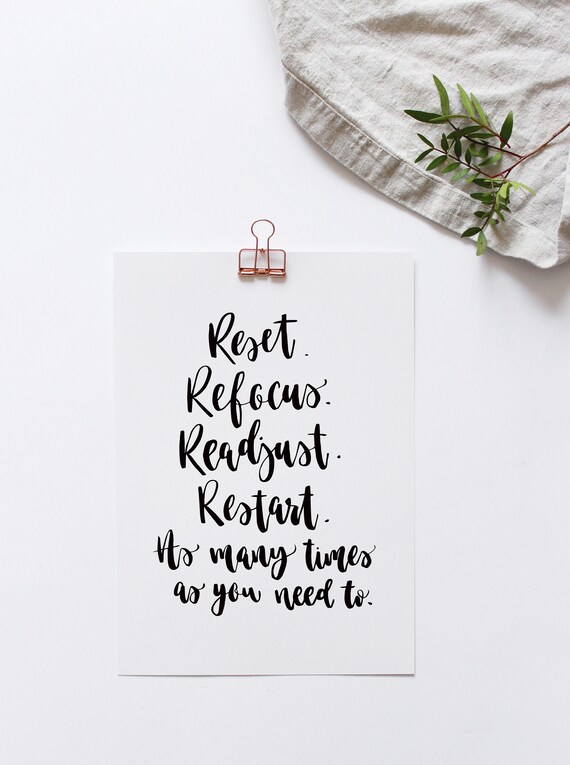 Reset.
Refocus.
Readjust.
Restart.
As many times
as you need to.